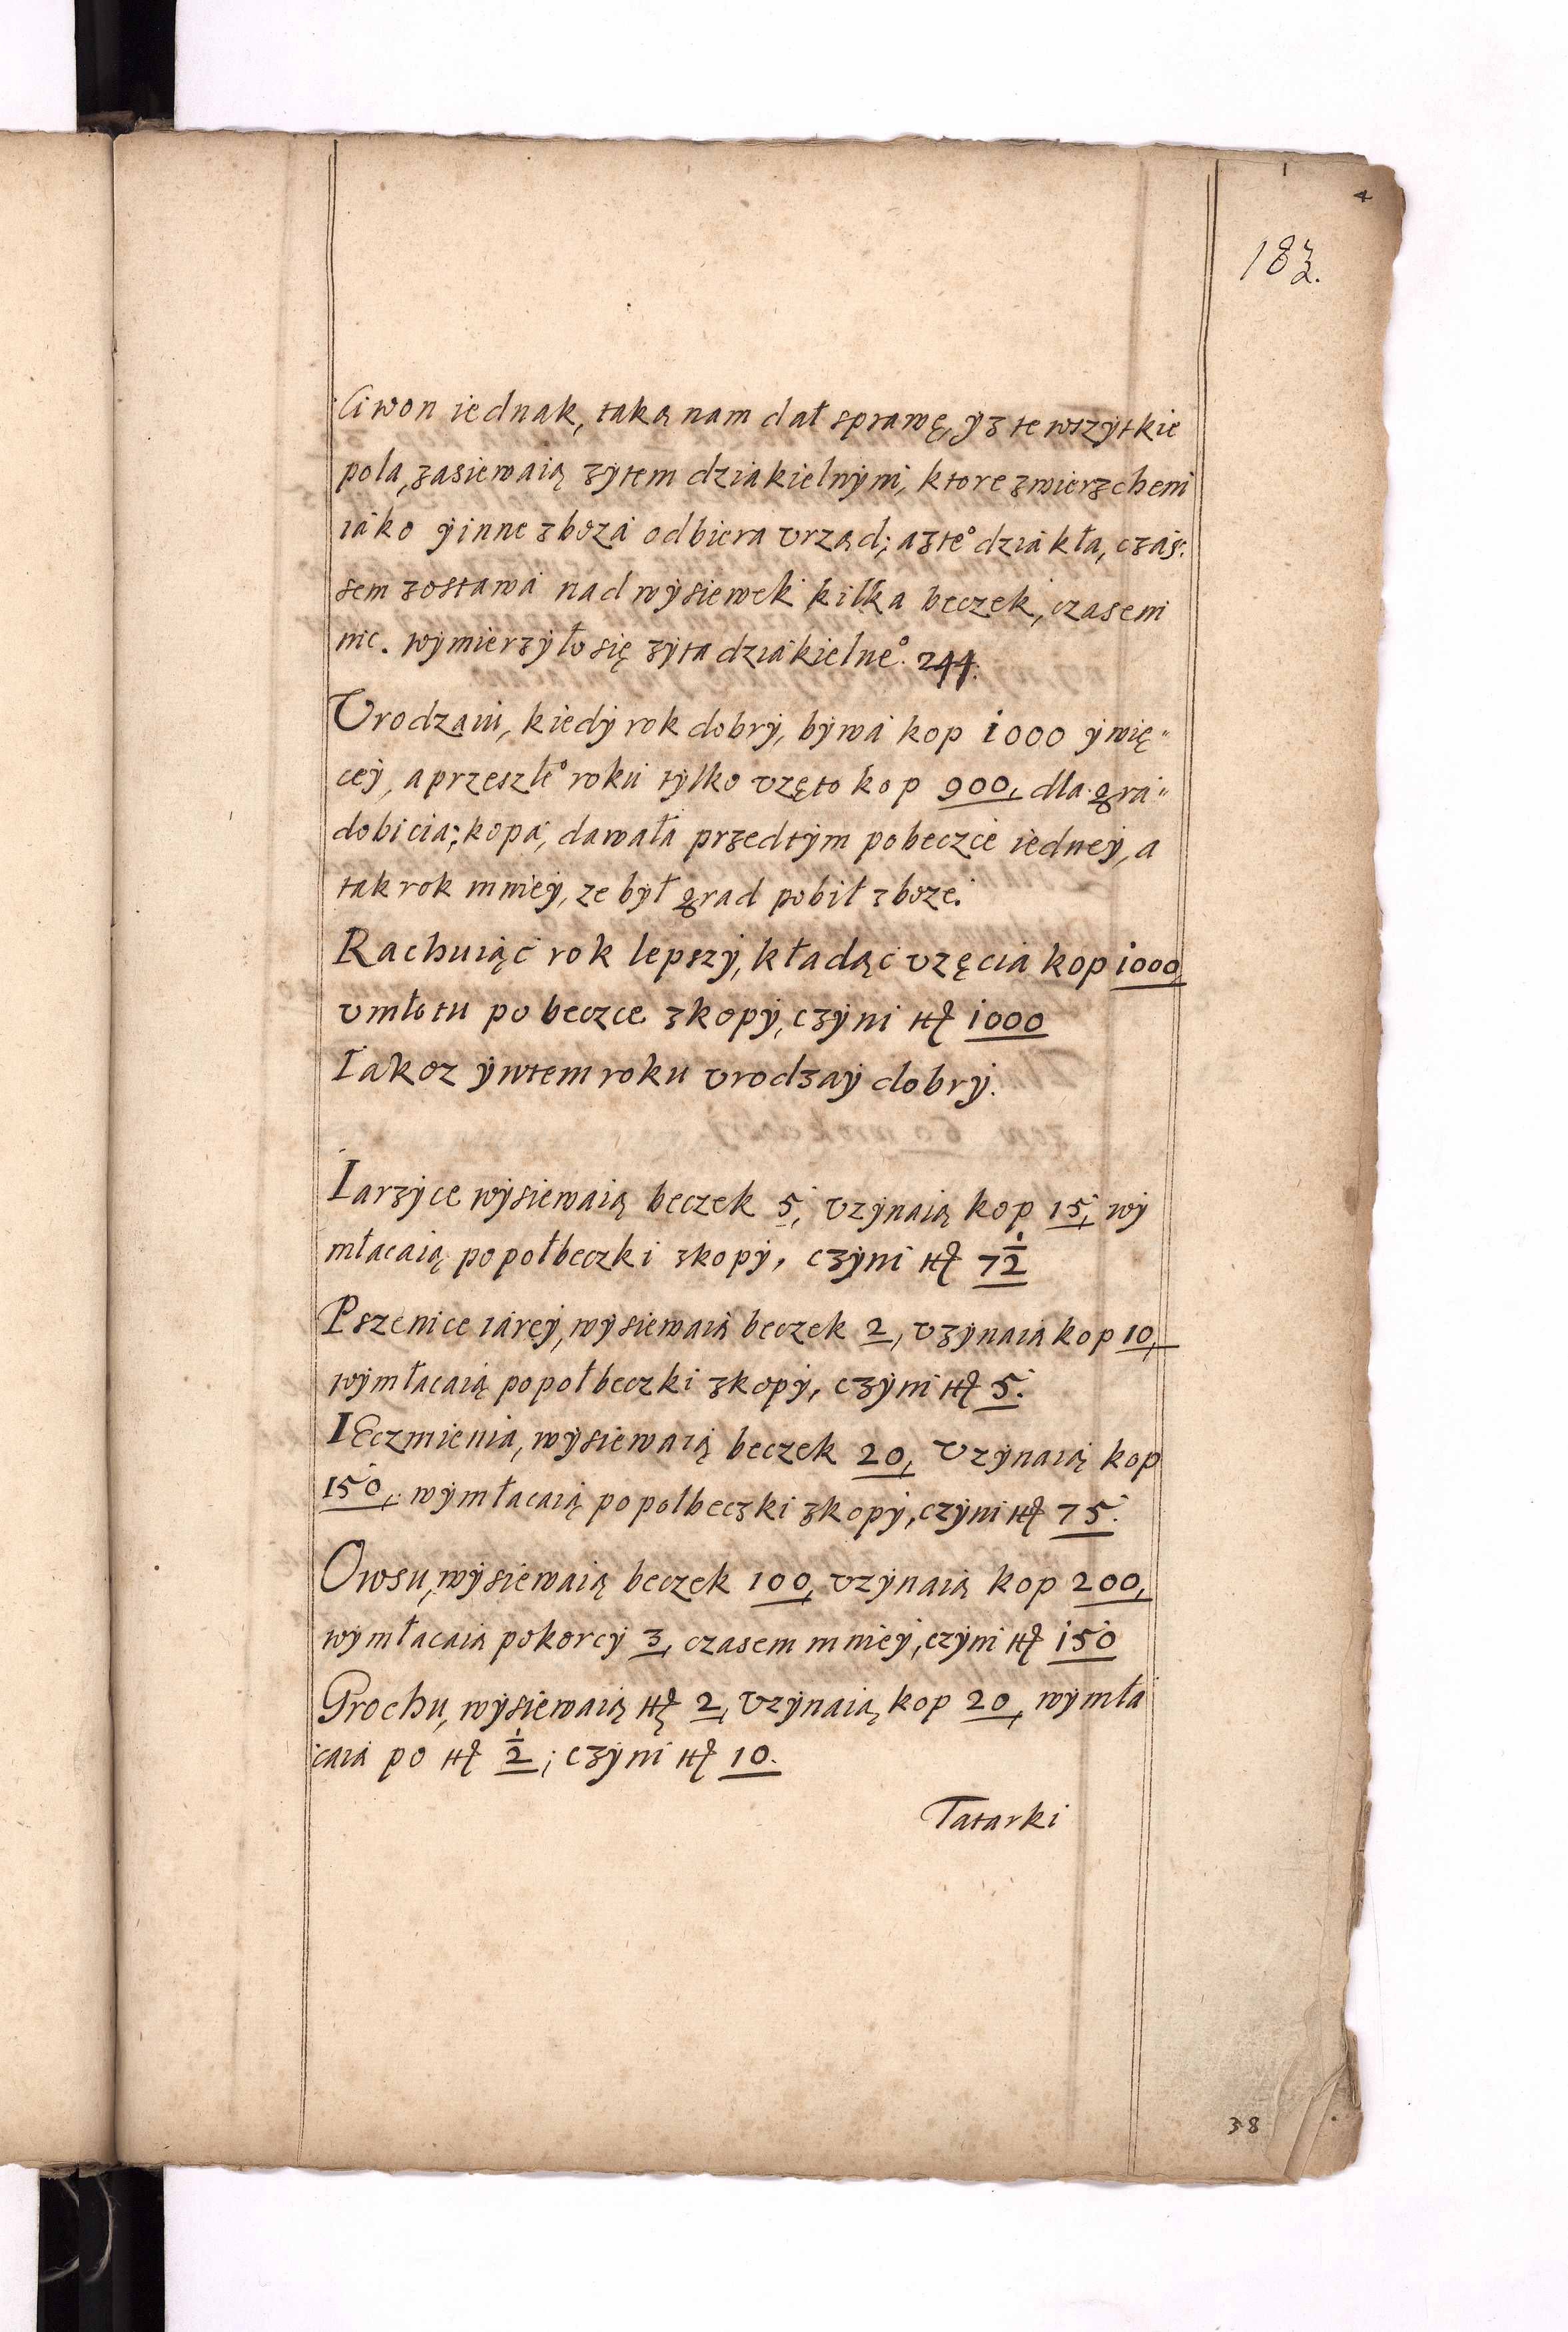 4
183.
Ciwon iednak, taką nam dał sprawę, yz te wszytkie
pola, zasiewaią zytem dziakielnym, ktore zwierzchem
iako y inne zboza odbiera vrząd; a z te° dziakła, czas:
sem zostawa nad wysiewek kilka beczek, czasem
nic. wymierzyło się zyta dziakielne°. 244.
Vrodzaiu, kiedy rok dobry, bywa kop 1000 y wię„
cey, a przeszłe° roku tylko vzęto kop 900, dla gra„
dobicia; kopa, dawała przedtym po beczce iedney, a
tak rok mniey, ze był grad pobił zboze.
Rachuiąc rok lepszy, kładąc vzęcia kop 1000,
vmłotu po beczce z kopy, czyni 1000
Iakoz y w tem roku vrodzay dobry.
Iarzyce wysiewaią beczek 5, vzynaią kop 15, wy
młacaią po połbeczki z kopy, czyni 7½
Pszenice iarey, wysiewaią beczek 2, vzynaią kop 10,
wymłacaią po połbeczki z kopy, czyni 5.
IEczmienia, wysiewaią beczek 20, vzynaią kop
150, wymłacaią po połbeczki z kopy, czyni 75.
Owsu, wysiewaią beczek 100, vzynaią kop 200,
wymłacaią po korcy 3, czasem mniey, czyni 150
Grochu, wysiewaią 2, vzynaią kop 20, wymła
caią po ½; czyni 10.
Tatarki
38